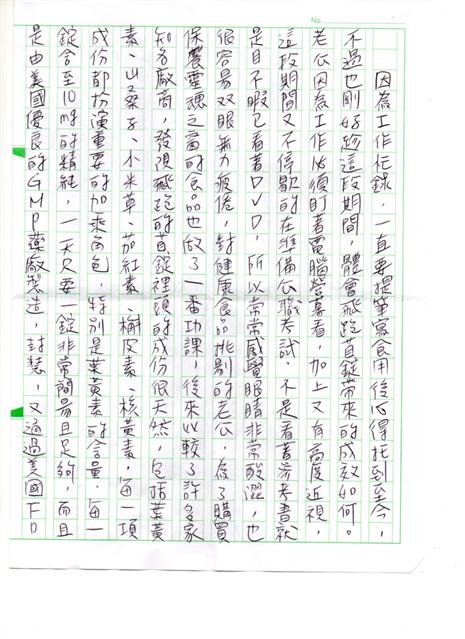 No.
因為工作忙錄，一直要提筆寫食用後心得托到至今，
不過也剛好趁這段期間，體會飛跑首錠帶來的成效如何。
老瓜因為工作必須盯著電腦螢幕看，加上又有高度近視，
這段期間又不停歇的在準備公職考試，不是看著參考書就
是目不暇己看著DVD，所以常常感覺眼睛非常酸澀，也
很容易双眼無力疲倦，對健康食品挑剔的老瓜，為了購買
保養靈魂之窗的食品也做了一番功課，後來比較了許多家
知名廠商，發現飛跑的首錠裡頭的成份很天然，包括葉黃
素、山桑子、小米草、茄紅素、槲皮素、核黃素，每一項
成份都扮演重要的加乘角色，特別是葉黃素的含量，每一
錠含至10mg的精純，一天只要一錠非常簡易且足夠，而且
是由美國優良的GMP藥廠製造，封裝，又通過美國FD